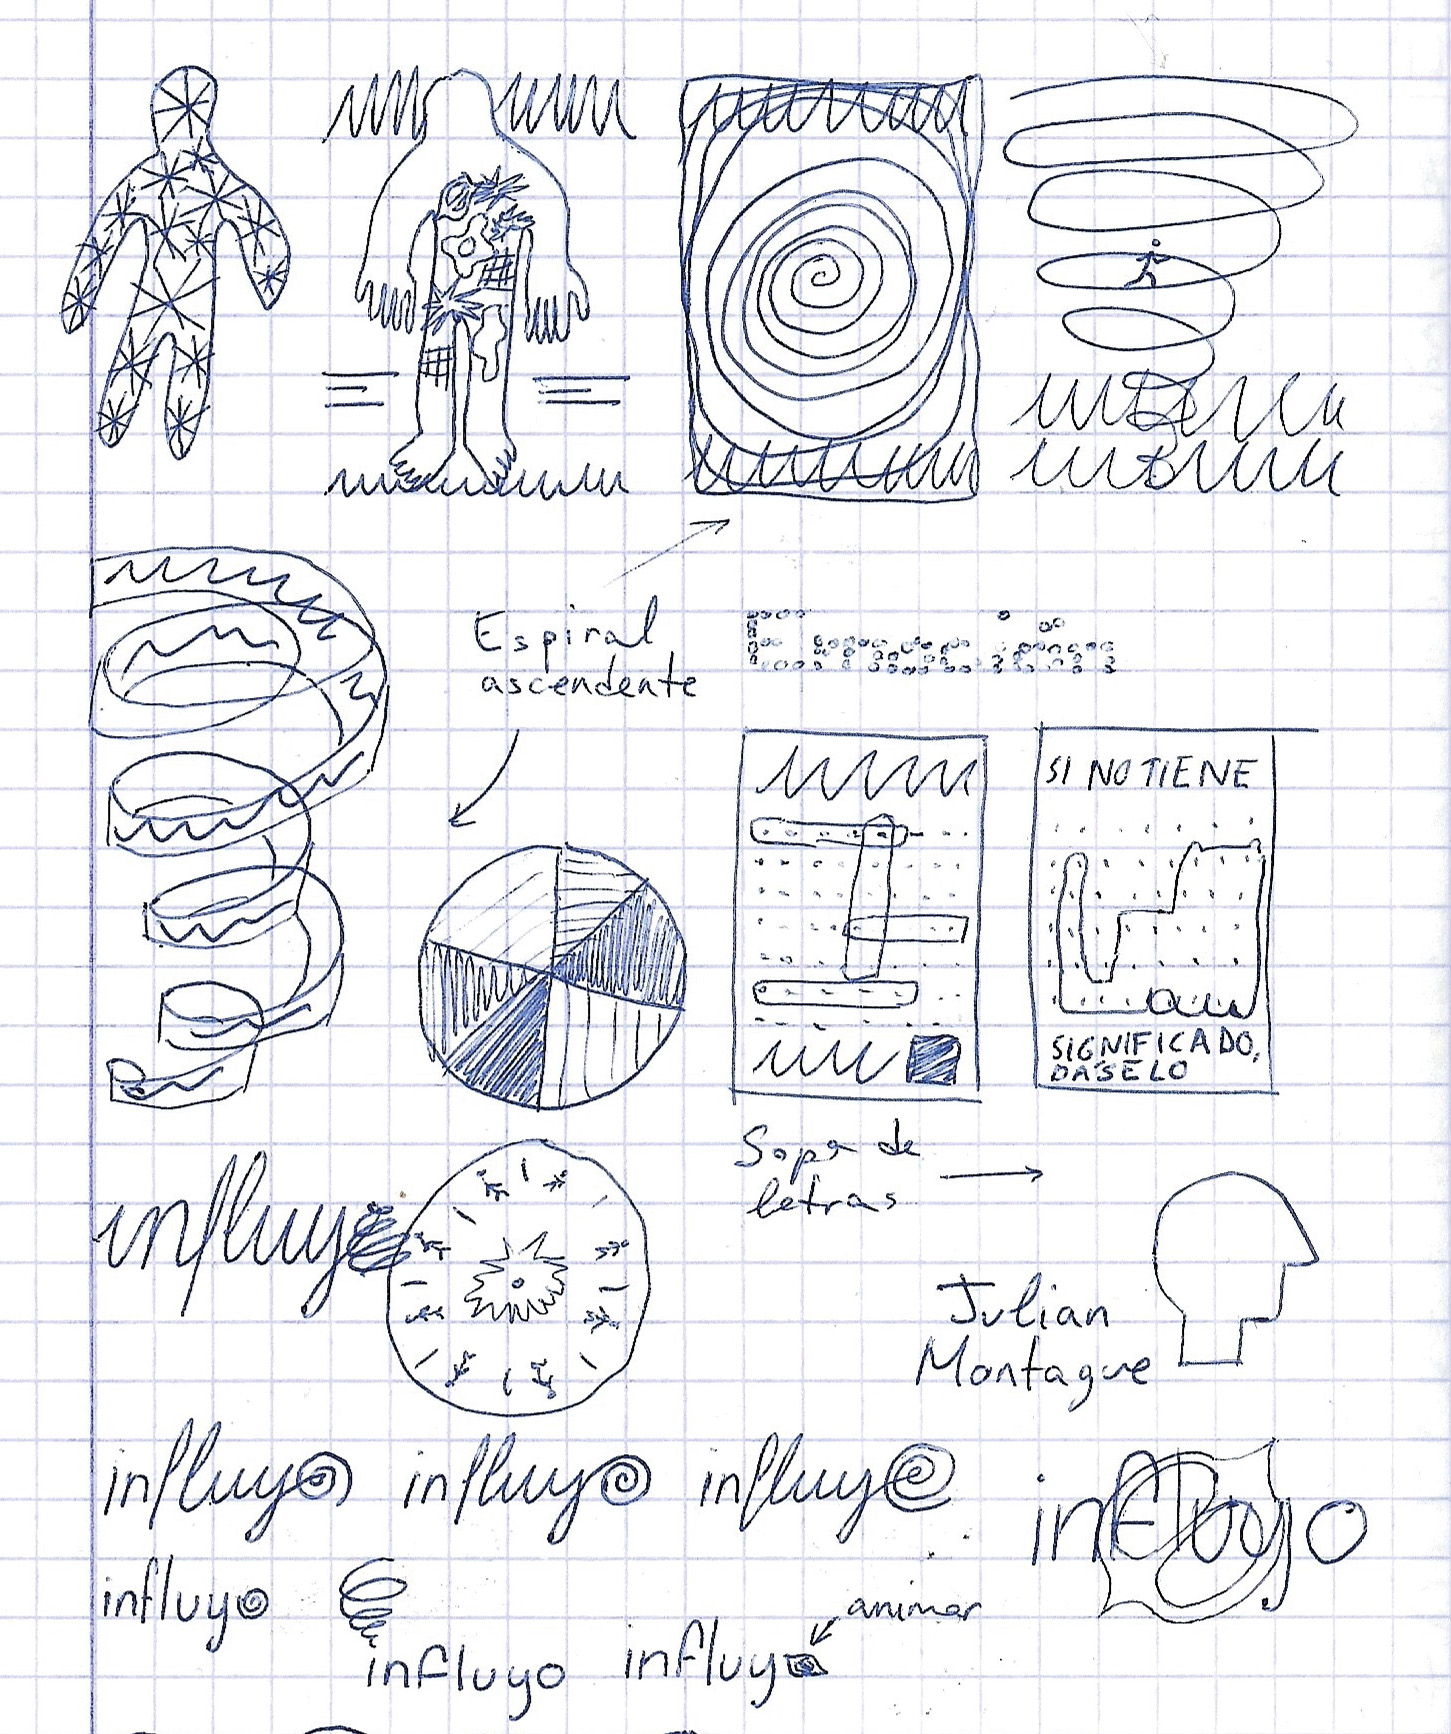 Espiral
ascendente
SI NO TIENE
SIGNIFICADO,
DASELO
Sopa de
letras
influyo
Julian
Montague
influyo influyo influyo influyo
influyo
animar
influyo influyo